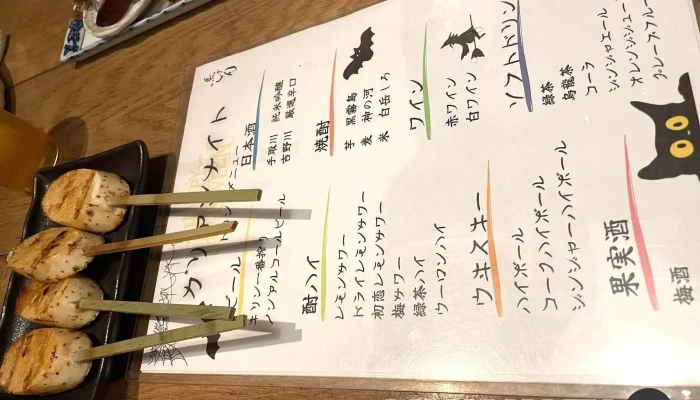 メニュー
ビール
キリン一番搾り
ノンアルコールビール
日本酒
手取川 純米吟醸
吉野川 厳選辛口
酎ハイ
レモンサワー
ドライレモンサワー
初恋レモンサワー
梅サワー
緑茶ハイ
ウーロンハイ
焼酎
芋 黒霧島
麦 神の河
米 白岳しろ
ウヰスキー
ハイボール
コークハイボール
ジンジャーハイボール
ワイン
赤ワイン
白ワイン
果実酒
梅酒
ソフトドリン
緑茶
烏龍茶
コーラ
ジンジャエール
オレンジジュー
グレープフルー